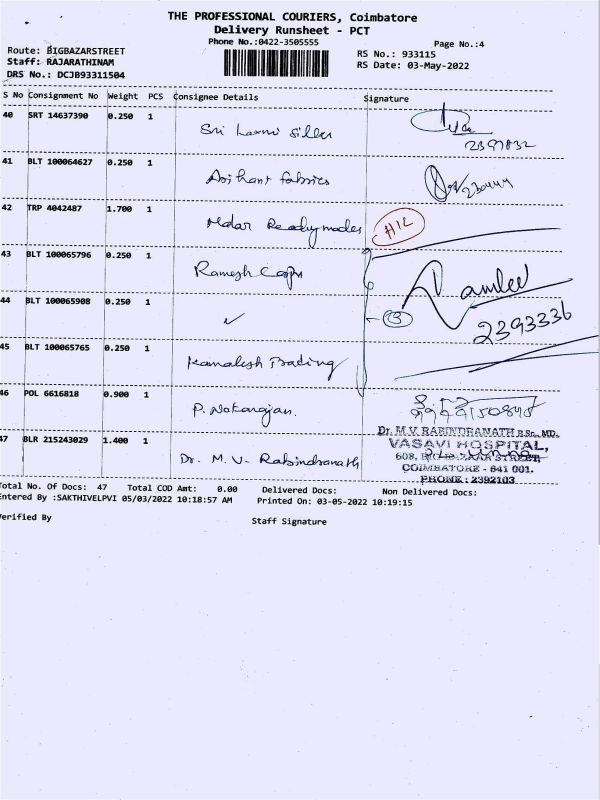 THE PROFESSIONAL COURIERS, Coimbatore
Delivery Runsheet - PCT
Phone No.:0422-3505555
Page No.:4
Route: BIGBAZARSTREET
Staff: RAJARATHINAM
DRS No.: DCJB93311504
RS No.: 933115
RS Date: 03-May-2022
S No Consignment No Weight PCS Consignee Details Signature
40 SRT 14637390 0.250 1 Sri Laxmi Silks
41 BLT 100064627 0.250 1 Arihant fabrics
42 TRP 4042487 1.700 1 Readymades
43 BLT 100065796 0.250 1 Ramesh
44 BLT 100065908 0.250 1 ✓
3
2393336
45 BLT 100065765 0.250 1 Kamalesh Trading
46 POL 6616818 0.900 1 P.
47 BLR 215243029 1.400 1 Dr. M. V. Rabindranath
Dr. M.V. RABINDRANATH B.Sc., MD.
VASAVI HOSPITAL,
608, STREET,
COIMBATORE - 641 001.
PHONE : 2392103
Total No. Of Docs: 47 Total COD Amt: 0.00 Delivered Docs: Non Delivered Docs:
Entered By :SAKTHIVELPVI 05/03/2022 10:18:57 AM Printed On: 03-05-2022 10:19:15
Verified By Staff Signature